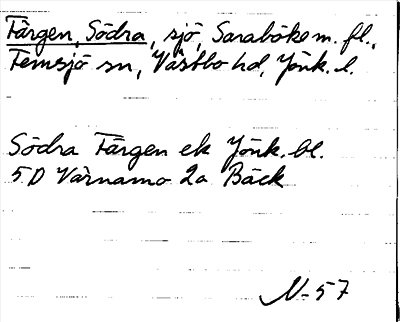 Färgen, Södra, sjö, Saraböke m. fl.,
Femsjö sn, Västbo hd, Jönk. l.
Södra Färgen ek Jönk. bl.
5D Värnamo 2a Bäck
N-57